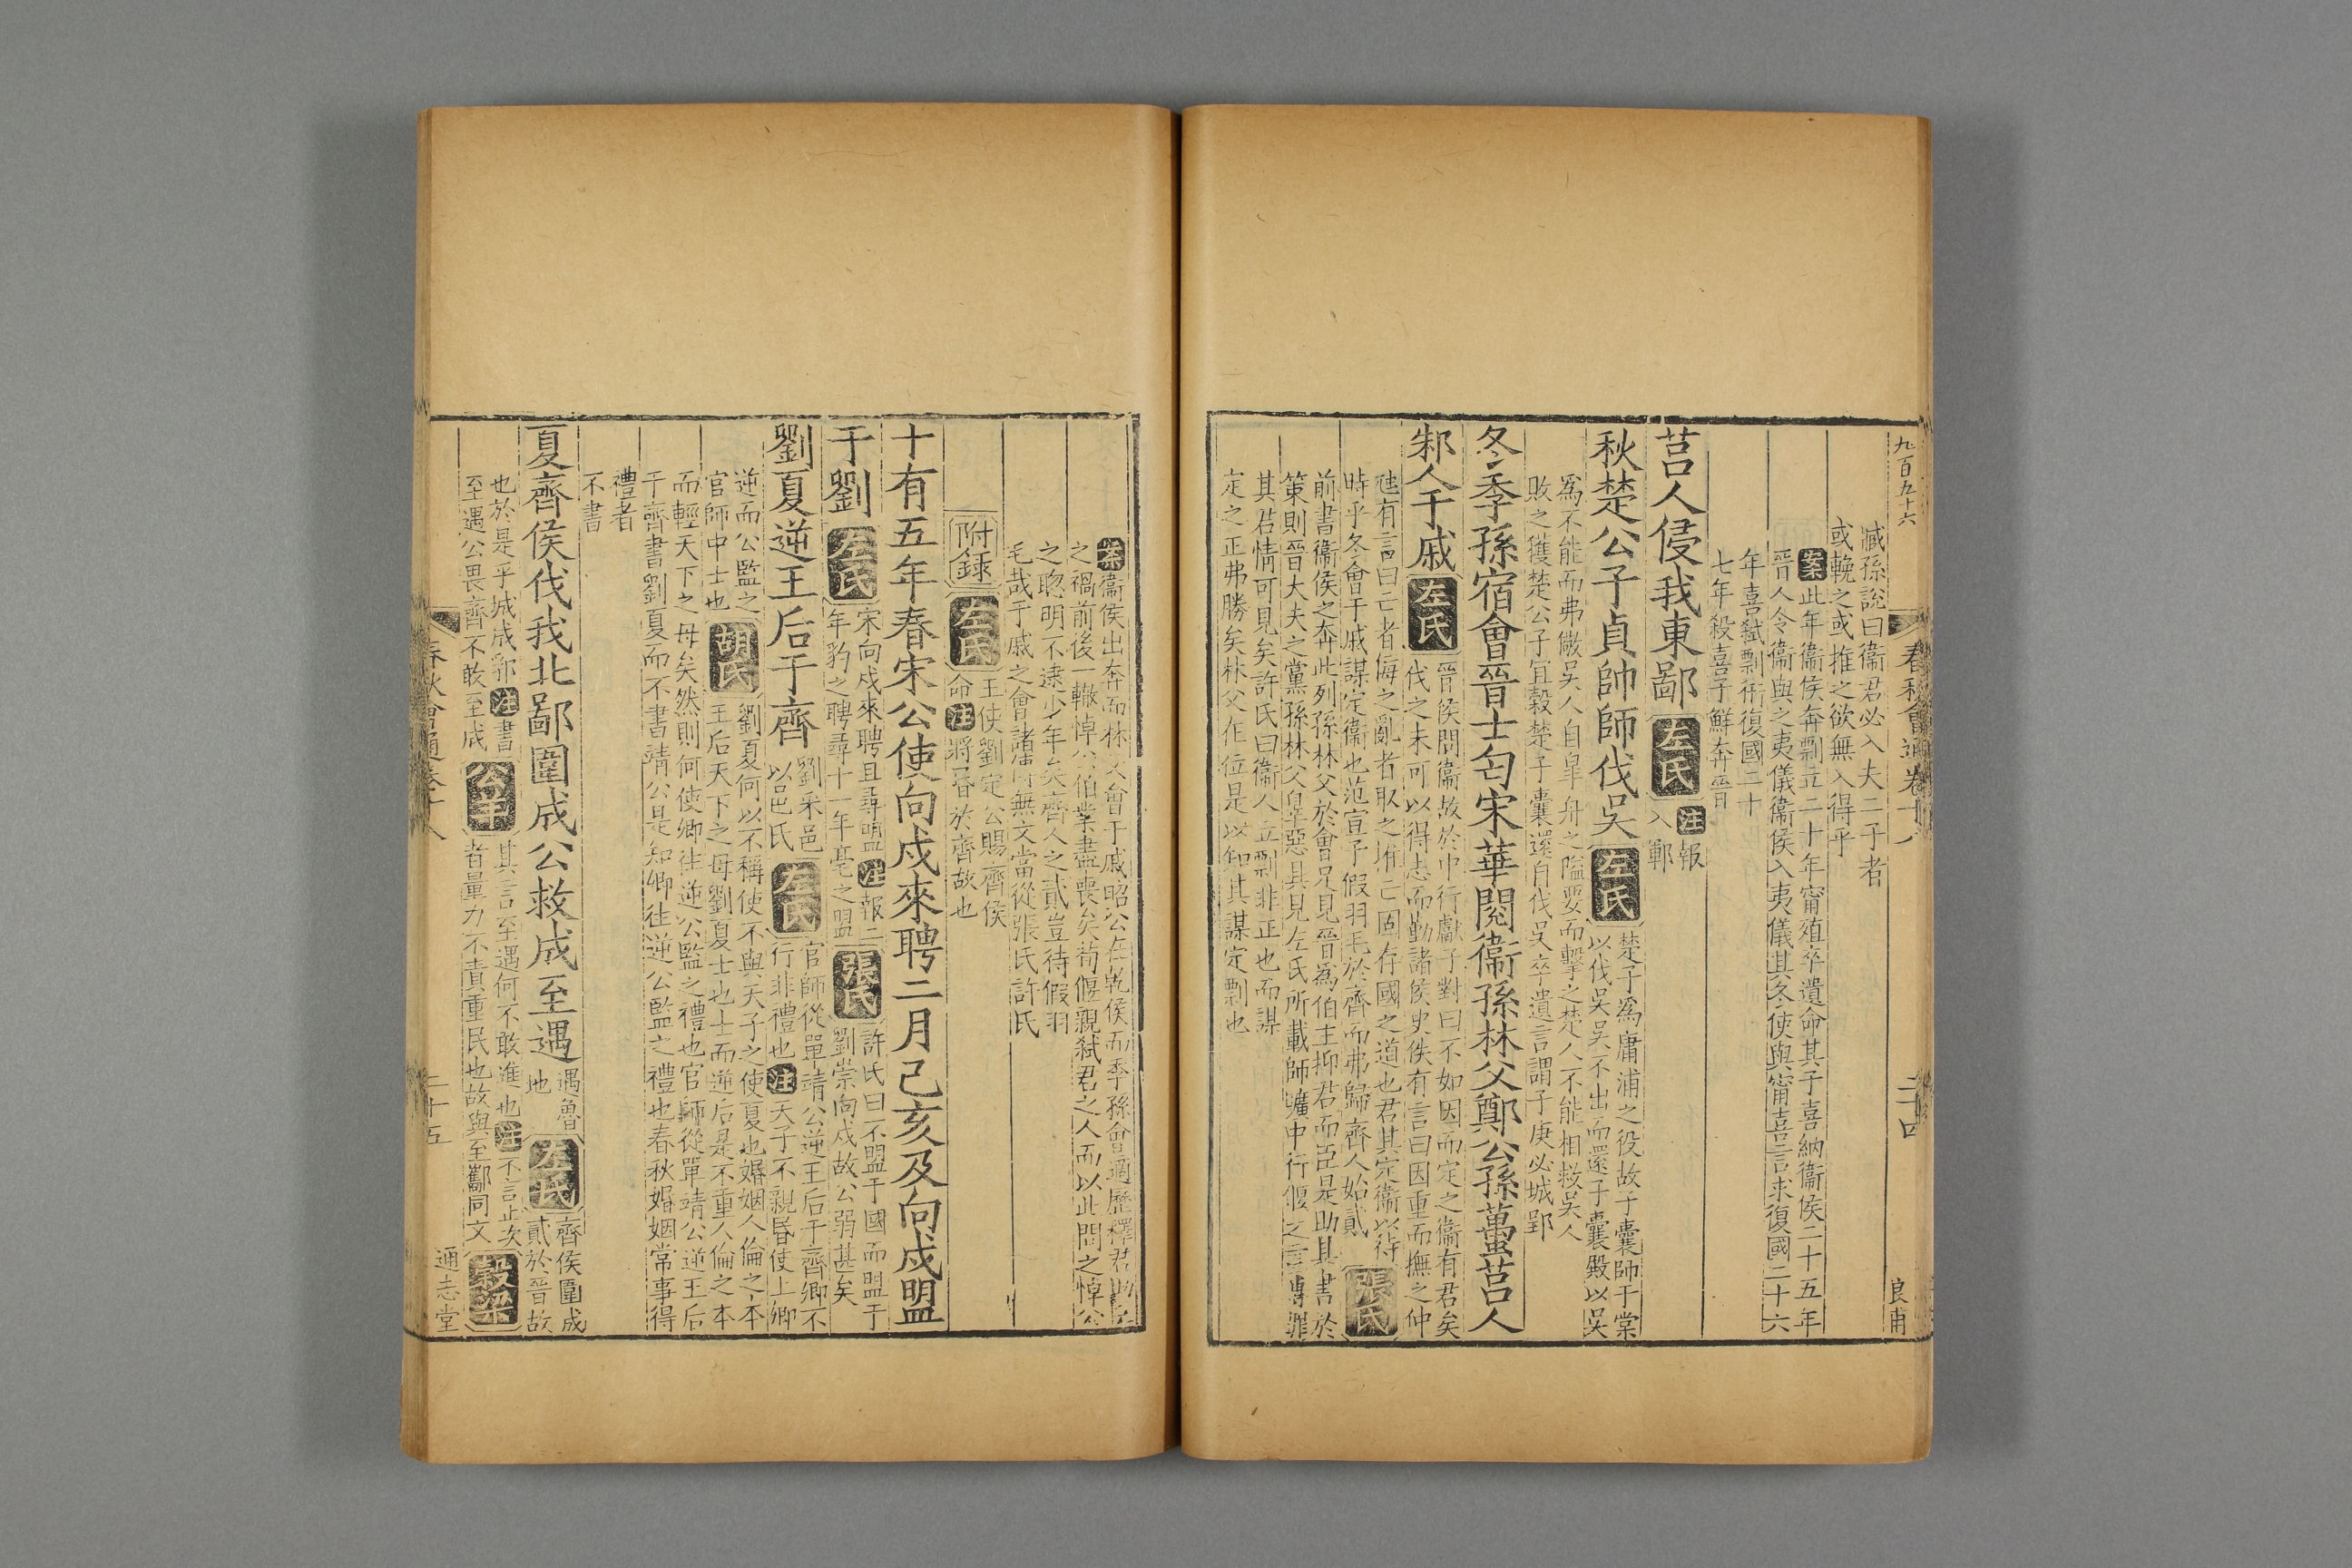 九百五十六
春秋會通卷十八
二十四
良甫
臧孫說曰衞君必入夫二子者
或輓之或推之欲無入得乎
案此年衞侯奔剽立二十年甯殖卒遺命其子喜納衞侯二十五年
晉人令衞與之夷儀衞侯入夷儀其冬使與甯喜言求復國二十六
年喜弑剽衎復國二十
七年殺喜子鮮奔晉
莒人侵我東鄙左氏注報
入鄆
秋楚公子貞帥師伐吳左氏楚子爲庸浦之役故子囊師于棠
以伐吳吳不出而還子囊殿以吳
爲不能而弗儆吳人自臯舟之隘要而擊之楚人不能相救吳人
敗之獲楚公子宜穀楚子囊還自伐吳卒遺言謂子庚必城郢
冬季孫宿會晉士匄宋華閱衞孫林父鄭公孫蠆莒人
邾人于戚左氏晉侯問衞故於中行獻子對曰不如因而定之衞有君矣
伐之未可以得志而勤諸侯史佚有言曰因重而撫之仲
虺有言曰亡者侮之亂者取之推亡固存國之道也君其定衞以待
時乎冬會于戚謀定衞也范宣子假羽毛於齊而弗歸齊人始貳張氏
前書衞侯之奔此列孫林父於會足見晉爲伯主抑君而臣是助其書於
策則晉大夫之黨孫林父辠惡具見左氏所載師曠中行偃之言專罪
其君情可見矣許氏曰衞人立剽非正也而謀
定之正弗勝矣林父在位是以知其謀定剽也
案衞侯出奔而林父會于戚昭公在乾侯而季孫會適歷釋君助臣
之禍前後一轍悼公伯業盡喪矣荀偃親弑君之人而以此問之悼公
之聦明不逮少年矣齊人之貳豈待假羽
毛哉于戚之會諸傳無文當從張氏許氏
附錄左氏王使劉定公賜齊侯
命注將昏於齊故也
十有五年春宋公使向戌來聘二月己亥及向戌盟
于劉左氏宋向戌來聘且尋盟注報二
年豹之聘尋十一年亳之盟張氏許氏曰不盟于國而盟于
劉崇向戌故公弱甚矣
劉夏逆王后于齊劉采邑
以邑氏左氏官師從單靖公逆王后于齊卿不
行非禮也注天子不親昏使上卿
逆而公監之
官師中士也胡氏劉夏何以不稱使不與天子之使夏也婚姻人倫之本
王后天下之母劉夏士也士而逆后是不重人倫之本
而輕天下之母矣然則何使卿往逆公監之禮也官師從單靖公逆王后
于齊書劉夏而不書靖公是知卿往逆公監之禮也春秋婚姻常事得
禮者
不書
夏齊侯伐我北鄙圍成公救成至遇遇魯
地左氏齊侯圍成
貳於晉故
也於是乎城成郛注書
至遇公畏齊不敢至成公羊其言至遇何不敢進也注不言止次
者量力不責重民也故與至酅同文穀梁
春秋會通卷十八
二十五
通志堂